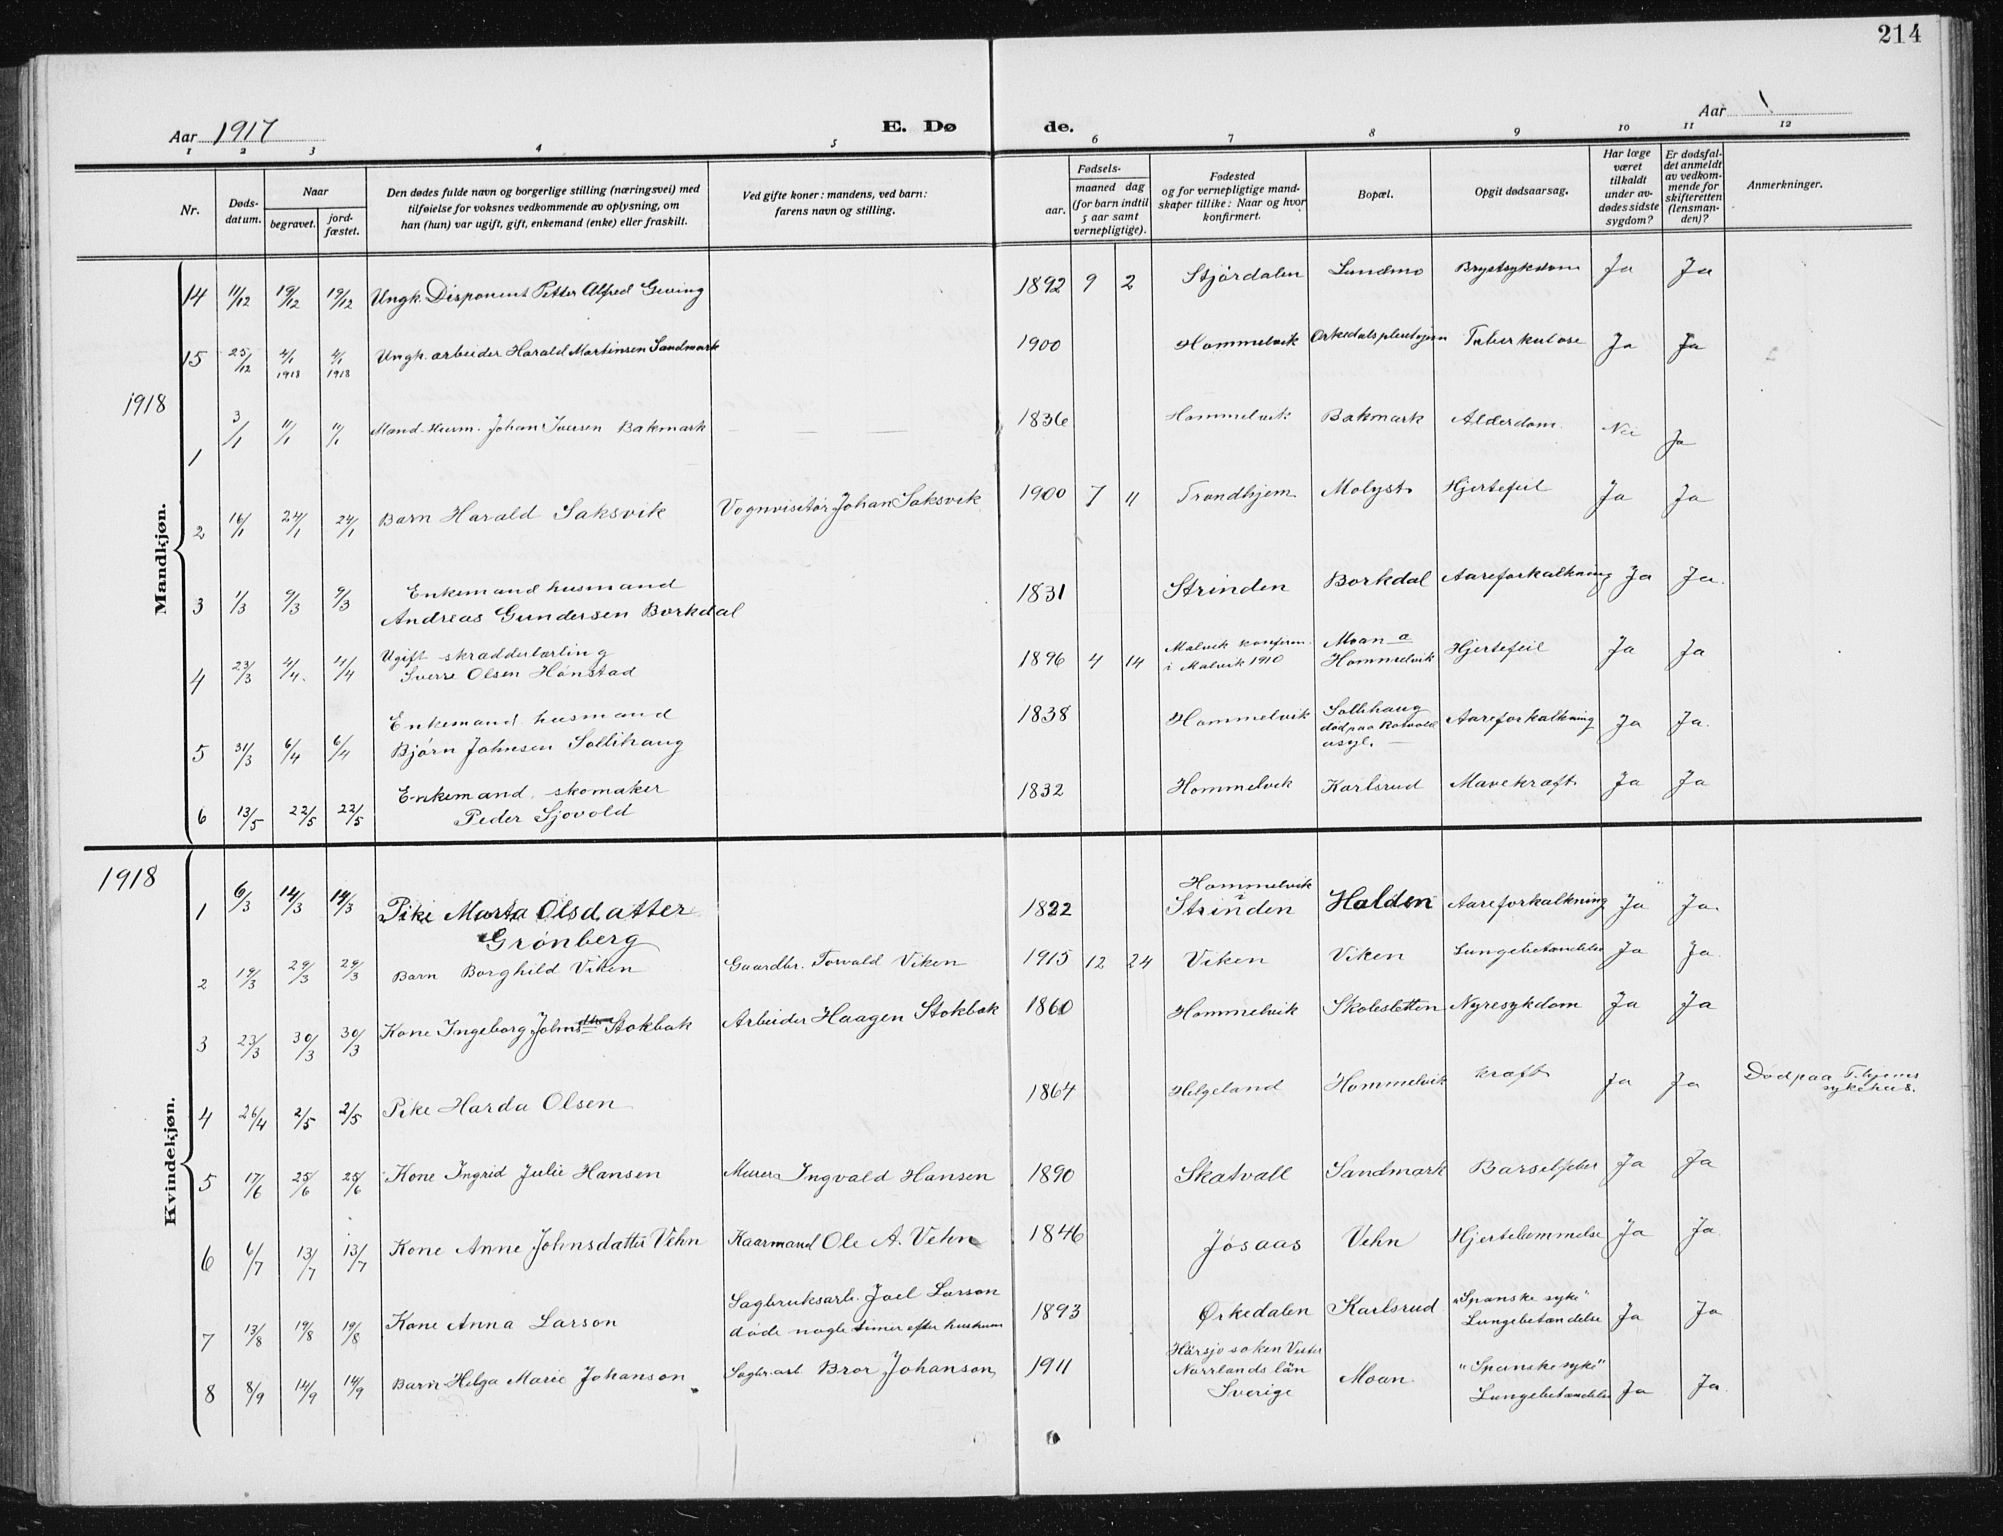 214
Aar 1917
E. Døde.
Aar 1
1 2 3 4 5 6 7 8 9 10 11 12
Nr.
Døds-
datum.
Naar
begravet.
jord-
fæstet.
Den dødes fulde navn og borgerlige stilling (næringsvei) med
tilføielse for voksnes vedkommende av oplysning, om
han (hun) var ugift, gift, enkemand (enke) eller fraskilt.
Ved gifte koner: mandens, ved barn:
farens navn og stilling.
Fødsels-
aar.
maaned dag
(for barn indtil
5 aar samt
vernepligtige).
Fødested
og for vernepligtige mand-
skaper tillike: Naar og hvor
konfirmert.
Bopæl.
Opgit dødsaarsag.
Har læge
været
tilkaldt
under av-
dødes sidste
sygdom?
Er dødsfal-
det anmeldt
av vedkom-
mende for
skifteretten
(lensman-
den)?
Anmerkninger.
Mandkjøn.
14 11/12 19/12 19/12 Ungk. Disponent Petter Alfred Geving 1892 9 2 Stjørdalen Lundmo Brystsykdom Ja Ja
15 25/12 4/1 1918 4/1 1918 Ungk. arbeider Harald Martinsen Sandmark 1900 Hommelvik Orkedals pleiehjem Tuberkulose Ja Ja
1918
1 3/1 11/1 11/1 Mand. Husm. Johan Iversen Bakmark 1836 Hommelvik Bakmark Alderdom. Nei Ja
2 16/1 24/1 24/1 Barn Harald Saksvik Vognvisitør Johan Saksvik 1900 7 11 Trondhjem Molyst Hjertefeil Ja Ja
3 1/3 9/3 9/3 Enkemand husmand
Andreas Gundersen Borkdal 1831 Strinden Borkdal Aareforkalkning Ja Ja.
4 23/3 4/4. 4/4 Ugift skrædderlærling
Sverre Olsen Hønstad 1896 4 14 Malvik konferm.
i Malvik 1910 Moan a
Hommelvik Hjertefeil Ja Ja
5 31/3 6/4 6/4 Enkemand husmand
Bjørn Johnsen Sollihaug 1838 Hommelvik Sollihaug
død paa Rotvold
asyl. Aareforkalkning Ja Ja.
6 13/5 22/5 22/5 Enkemand. skomaker
Peder Sjovold 1832 Hommelvik Karlsrud Mavekræft Ja Ja
1918
Kvindekjøn.
1 6/3 14/3 14/3 Pike Marta Olsdatter
Grønberg 1822 Hommelvik
i
Strinden Halden Aareforkalkning Ja Ja.
2 19/3 29/3 29/3 Barn Borghild Viken Gaardbr. Torvald Viken 1915 12 24 Viken Viken Lungebetændelse Ja Ja.
3 23/3 30/3 30/3 Kone Ingeborg Johns Stokbak Arbeider Haagen Stokbak 1860 Hommelvik Skolesletten Nyresykdom Ja Ja
4 26/4 2/5 2/5 Pike Harda Olsen 1864 Helgeland Hommelvik kræft Ja Ja Død paa T.hjems
sykehus.
5 17/6 25/6 25/6 Kone Ingrid Julie Hansen Murer Ingvald Hansen 1890 Skatvall Sandmark Barselfeber Ja Ja
6 6/7 13/7 13/7 Kone Anne Johnsdatter Vehn Kaarmand Ole A. Vehn 1846 Jøsaas Vehn Hjertelammelse Ja Ja
7 13/8 19/8 19/8 Kone Anna Larson Sagbruksarb. Joel Larson
døde nogle timer efter hustruen 1893 Ørkedalen Karlsrud "Spanske syke"
Lungebetændelse Ja Ja
8 8/9 14/9 14/9 Barn Helga Marie Johanson. Sagbr.arb. Bror Johanson, 1911 Härsjo soken Vester
Norrlands län
Sverige Moan. "Spanske syke"
Lungebetændelse Ja Ja.